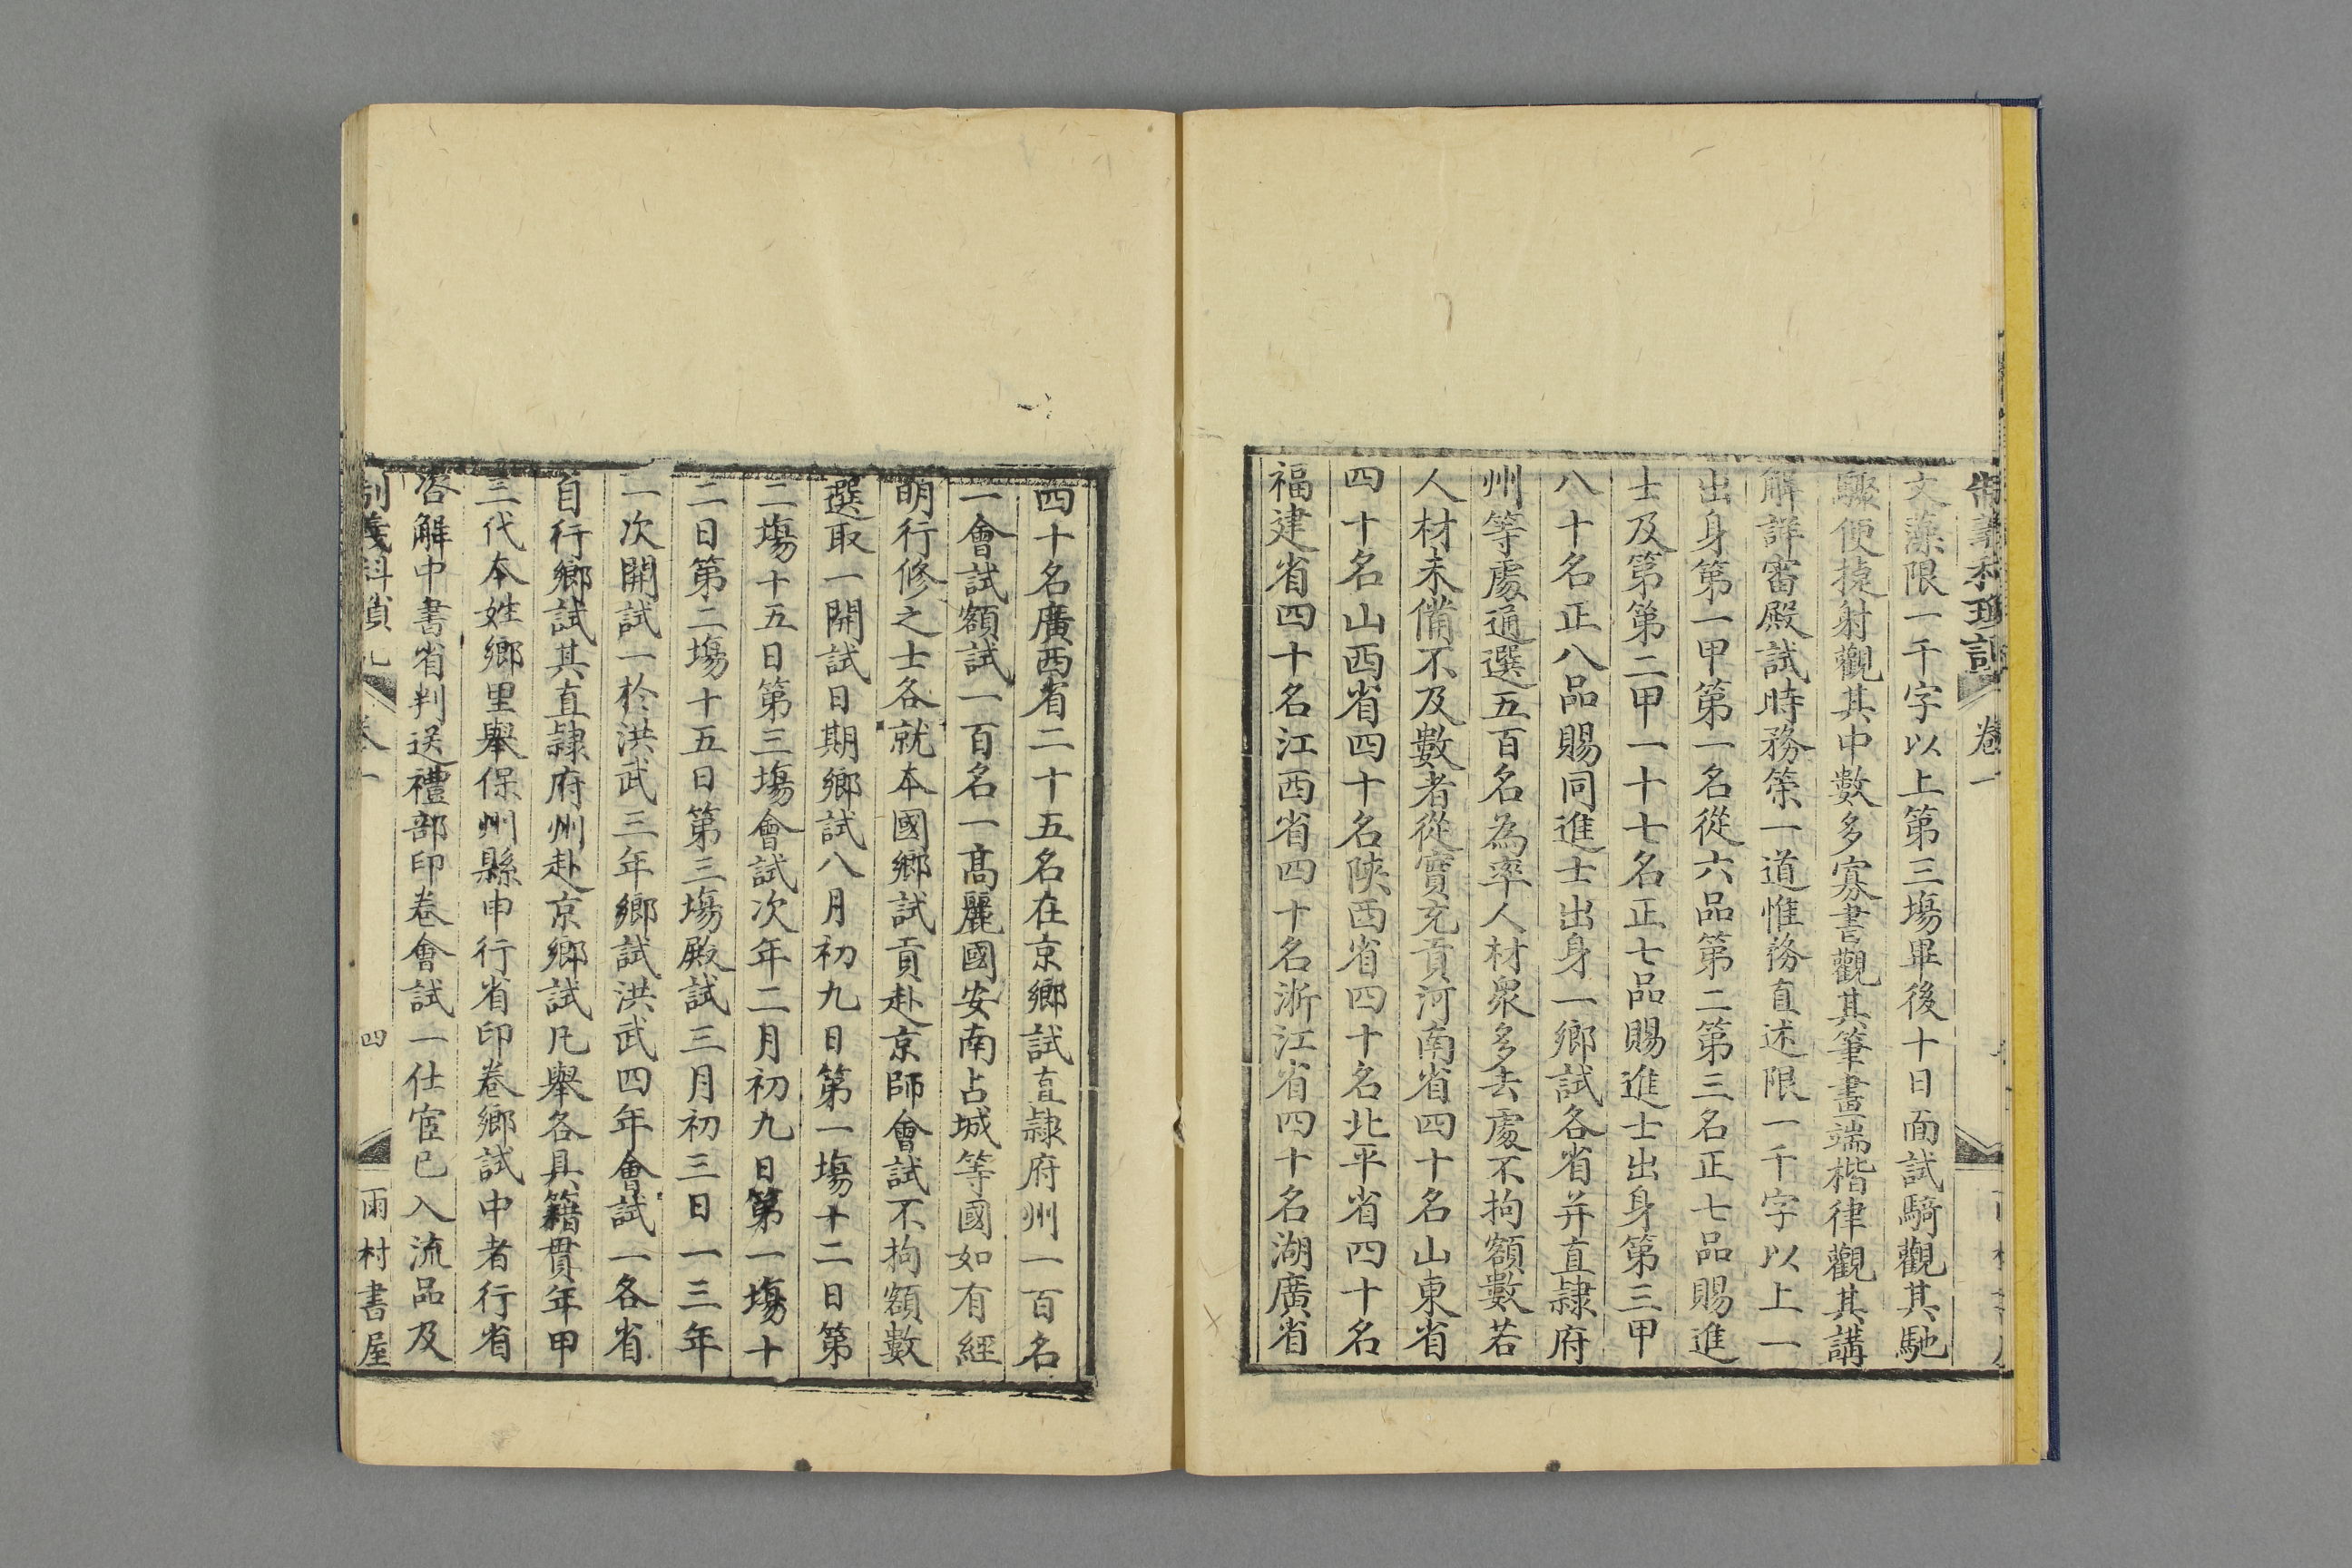 制義科瑣記 卷一
文藻限一千字以上第三塲畢後十日面試騎觀其馳
驟便捷射觀其中數多寡書觀其筆畫端楷律觀其講
解詳審殿試時務策一道惟務直述限一千字以上一
出身第一甲第一名從六品第二第三名正七品賜進
士及第第二甲一十七名正七品賜進士出身第三甲
八十名正八品賜同進士出身一鄉試各省并直隸府
州等處通選五百名為率人材衆多去處不拘額數若
人材未備不及數者從實充貢河南省四十名山東省
四十名山西省四十名陝西省四十名北平省四十名
福建省四十名江西省四十名浙江省四十名湖廣省
四十名廣西省二十五名在京鄉試直隸府州一百名
一會試額試一百名一髙麗國安南占城等國如有經
明行修之士各就本國鄉試貢赴京師會試不拘額數
選取一開試日期鄉試八月初九日第一塲十二日第
二塲十五日第三塲會試次年二月初九日第一塲十
二日第二塲十五日第三塲殿試三月初三日一三年
一次開試一於洪武三年鄉試洪武四年會試一各省
自行鄉試其直隸府州赴京鄉試凡舉各具籍貫年甲
三代本姓鄉里舉保州縣申行省印卷鄉試中者行省
咨解中書省判送禮部印卷會試一仕宦已入流品及
制義科瑣記 卷一 四 雨村書屋